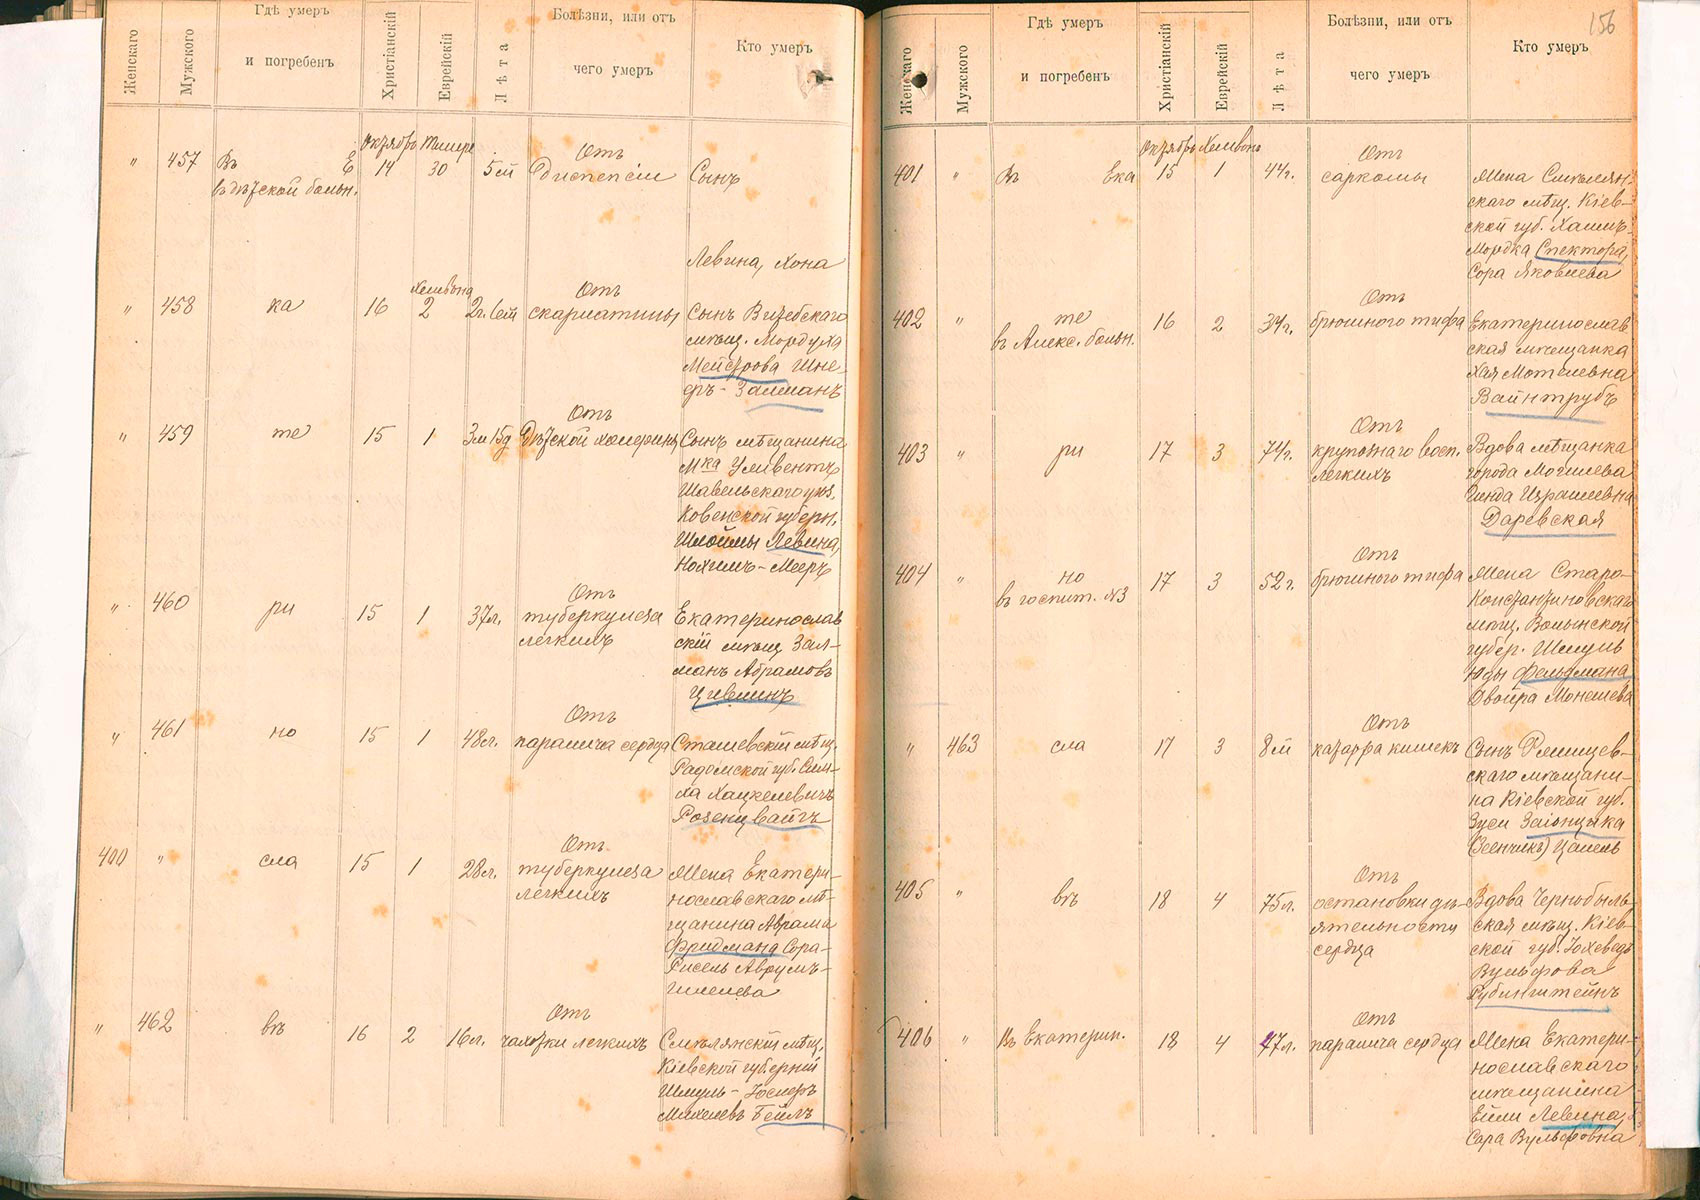 Женскаго
Мужского
Гдѣ умеръ
и погребенъ
Христіанскій
Еврейскій
Лѣта
Болѣзни, или отъ
чего умеръ
Кто умеръ
Октябрь Тишере
" 457 Въ Е 14 30 5 ей Отъ
диспепсіи Сынъ
в дѣтской больн.
Левина, Хона
Хешвона
" 458 ка 16 2 2г. 6ей Отъ
скарлатины Сынъ Витебскаго
мѣщ. Мордуха
Мейерова Шне-
еръ - Залманъ
" 459 те 15 1 3м 15д Отъ
Дѣтской холерины Сынъ мѣщанина
М-ка
Шавельскаго уѣз.
Ковенской губерн.
Шлоймы Левина,
Нохимъ - Мееръ
" 460 ри 15 1 37л. Отъ
туберкулеза
легкихъ
Екатеринослав
скій мѣщ Зал-
манъ Абрамовъ
Цивлинъ
" 461 но 15 1 48л. Отъ
паралича сердца Сташевскій мѣщ.
Радомской губ. Сим-
ха Хацкелевичъ
Розенцвайгъ
400 " сла 15 1 28л. Отъ
туберкулеза
легкихъ
Жена Екатери-
нославскаго мѣ-
щанина Аврама
Фридмана Сора-
Рисель Аврумъ-
Гилелева
" 462 въ 16 2 16л. Отъ
чахотки легкихъ Смѣлянскій мѣщ.
Кіевской губерніи
Шмуль - Іосифъ
Михелевъ Бейлъ
156
Женскаго
Мужского
Гдѣ умеръ
и погребенъ
Христіанскій
Еврейскій
Лѣта
Болѣзни, или отъ
чего умеръ
Кто умеръ
Октябрь Хешвонъ
401 " Въ Ека 15 1 44г. Отъ
саркомы Жена Смѣлян-
скаго мѣщ. Кіев-
ской губ. Хаимъ-
Мордка Спектора,
Сора Яковлева
402 " те 16 2 34г. Отъ
брюшного тифа Екатеринослав
в Алекс. больн.
ская мѣщанка
Хая Мотелевна
Вайнтрубъ
403 " ри 17 3 74г. Отъ
крупознаго восп.
легкихъ
Вдова мѣщанка
города Могилева
Гинда Израилевна
Даревская
404 " но 17 3 52г. Отъ
брюшного тифа Жена Старо-
в госпит. №3
Константиновскаго
мѣщ. Волынской
губер. Шмуль
Юды Фельдмана
Двойра Моношева
" 463 сла 17 3 8м Отъ
катарра кишекъ Сынъ Ржищев-
скаго мѣщани-
на Кіевской губ.
Зуси Заіончыка
(Зеенчикъ) Цалель
405 " въ 18 4 75л. Отъ
остановки дѣ-
ятельности
сердца
Вдова Чернобыль-
ская мѣщ. Кіев-
ской губ. Юхеведъ
Вульфова
Рубинштейнъ
406 " Въ Екатерин. 18 4 47л. Отъ
паралича сердца Жена Екатери-
нославскаго
мѣщанина
Ейли Левина,
Сара Вульфовна